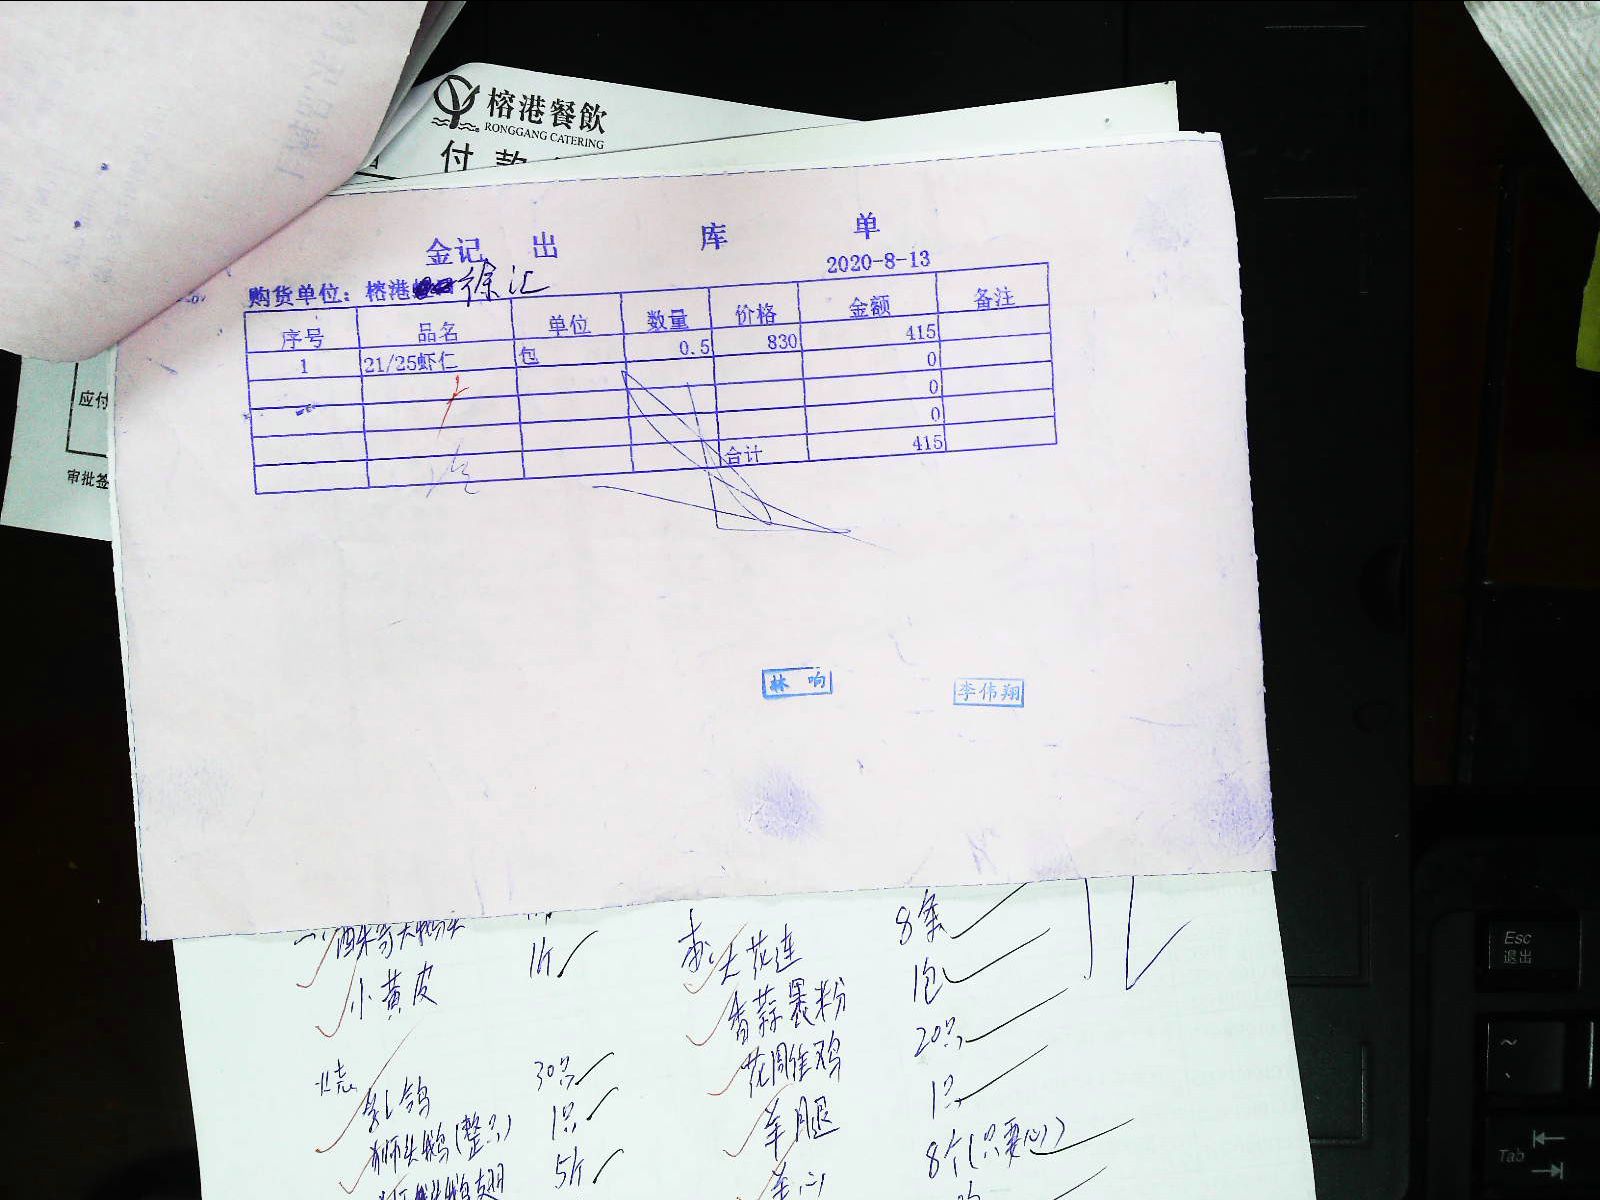 榕港餐飲
RONGGANG CATERING
付款
金记 出 库 单
2020-8-13
购货单位：榕港 徐汇
序号 品名 单位 数量 价格 金额 备注
1 21/25虾仁 包 0.5 830 415
0
0
0
合计 415
应付
审批签
林响 李伟翔
8条
小黄皮 1斤
大花莲 1包
香蒜裹粉 20只
花周雏鸡 1只
烧 乳鸽 30只
羊腿 8个(只要心)
狮头鹅(整只) 1只
羊心
5斤
Esc
退出
~
Tab